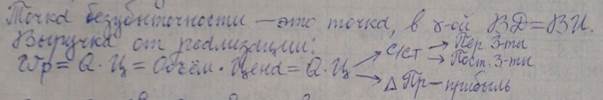 Точка безубыточности – это точка, в к-ой ВД=ВИ.
Выручка от реализации:
Wр = Q · Ц = Объём · Цена = Q · Ц → с/ст → Пер. З-ты
→ Пост. З-ты
→ Δ Пр – прибыль